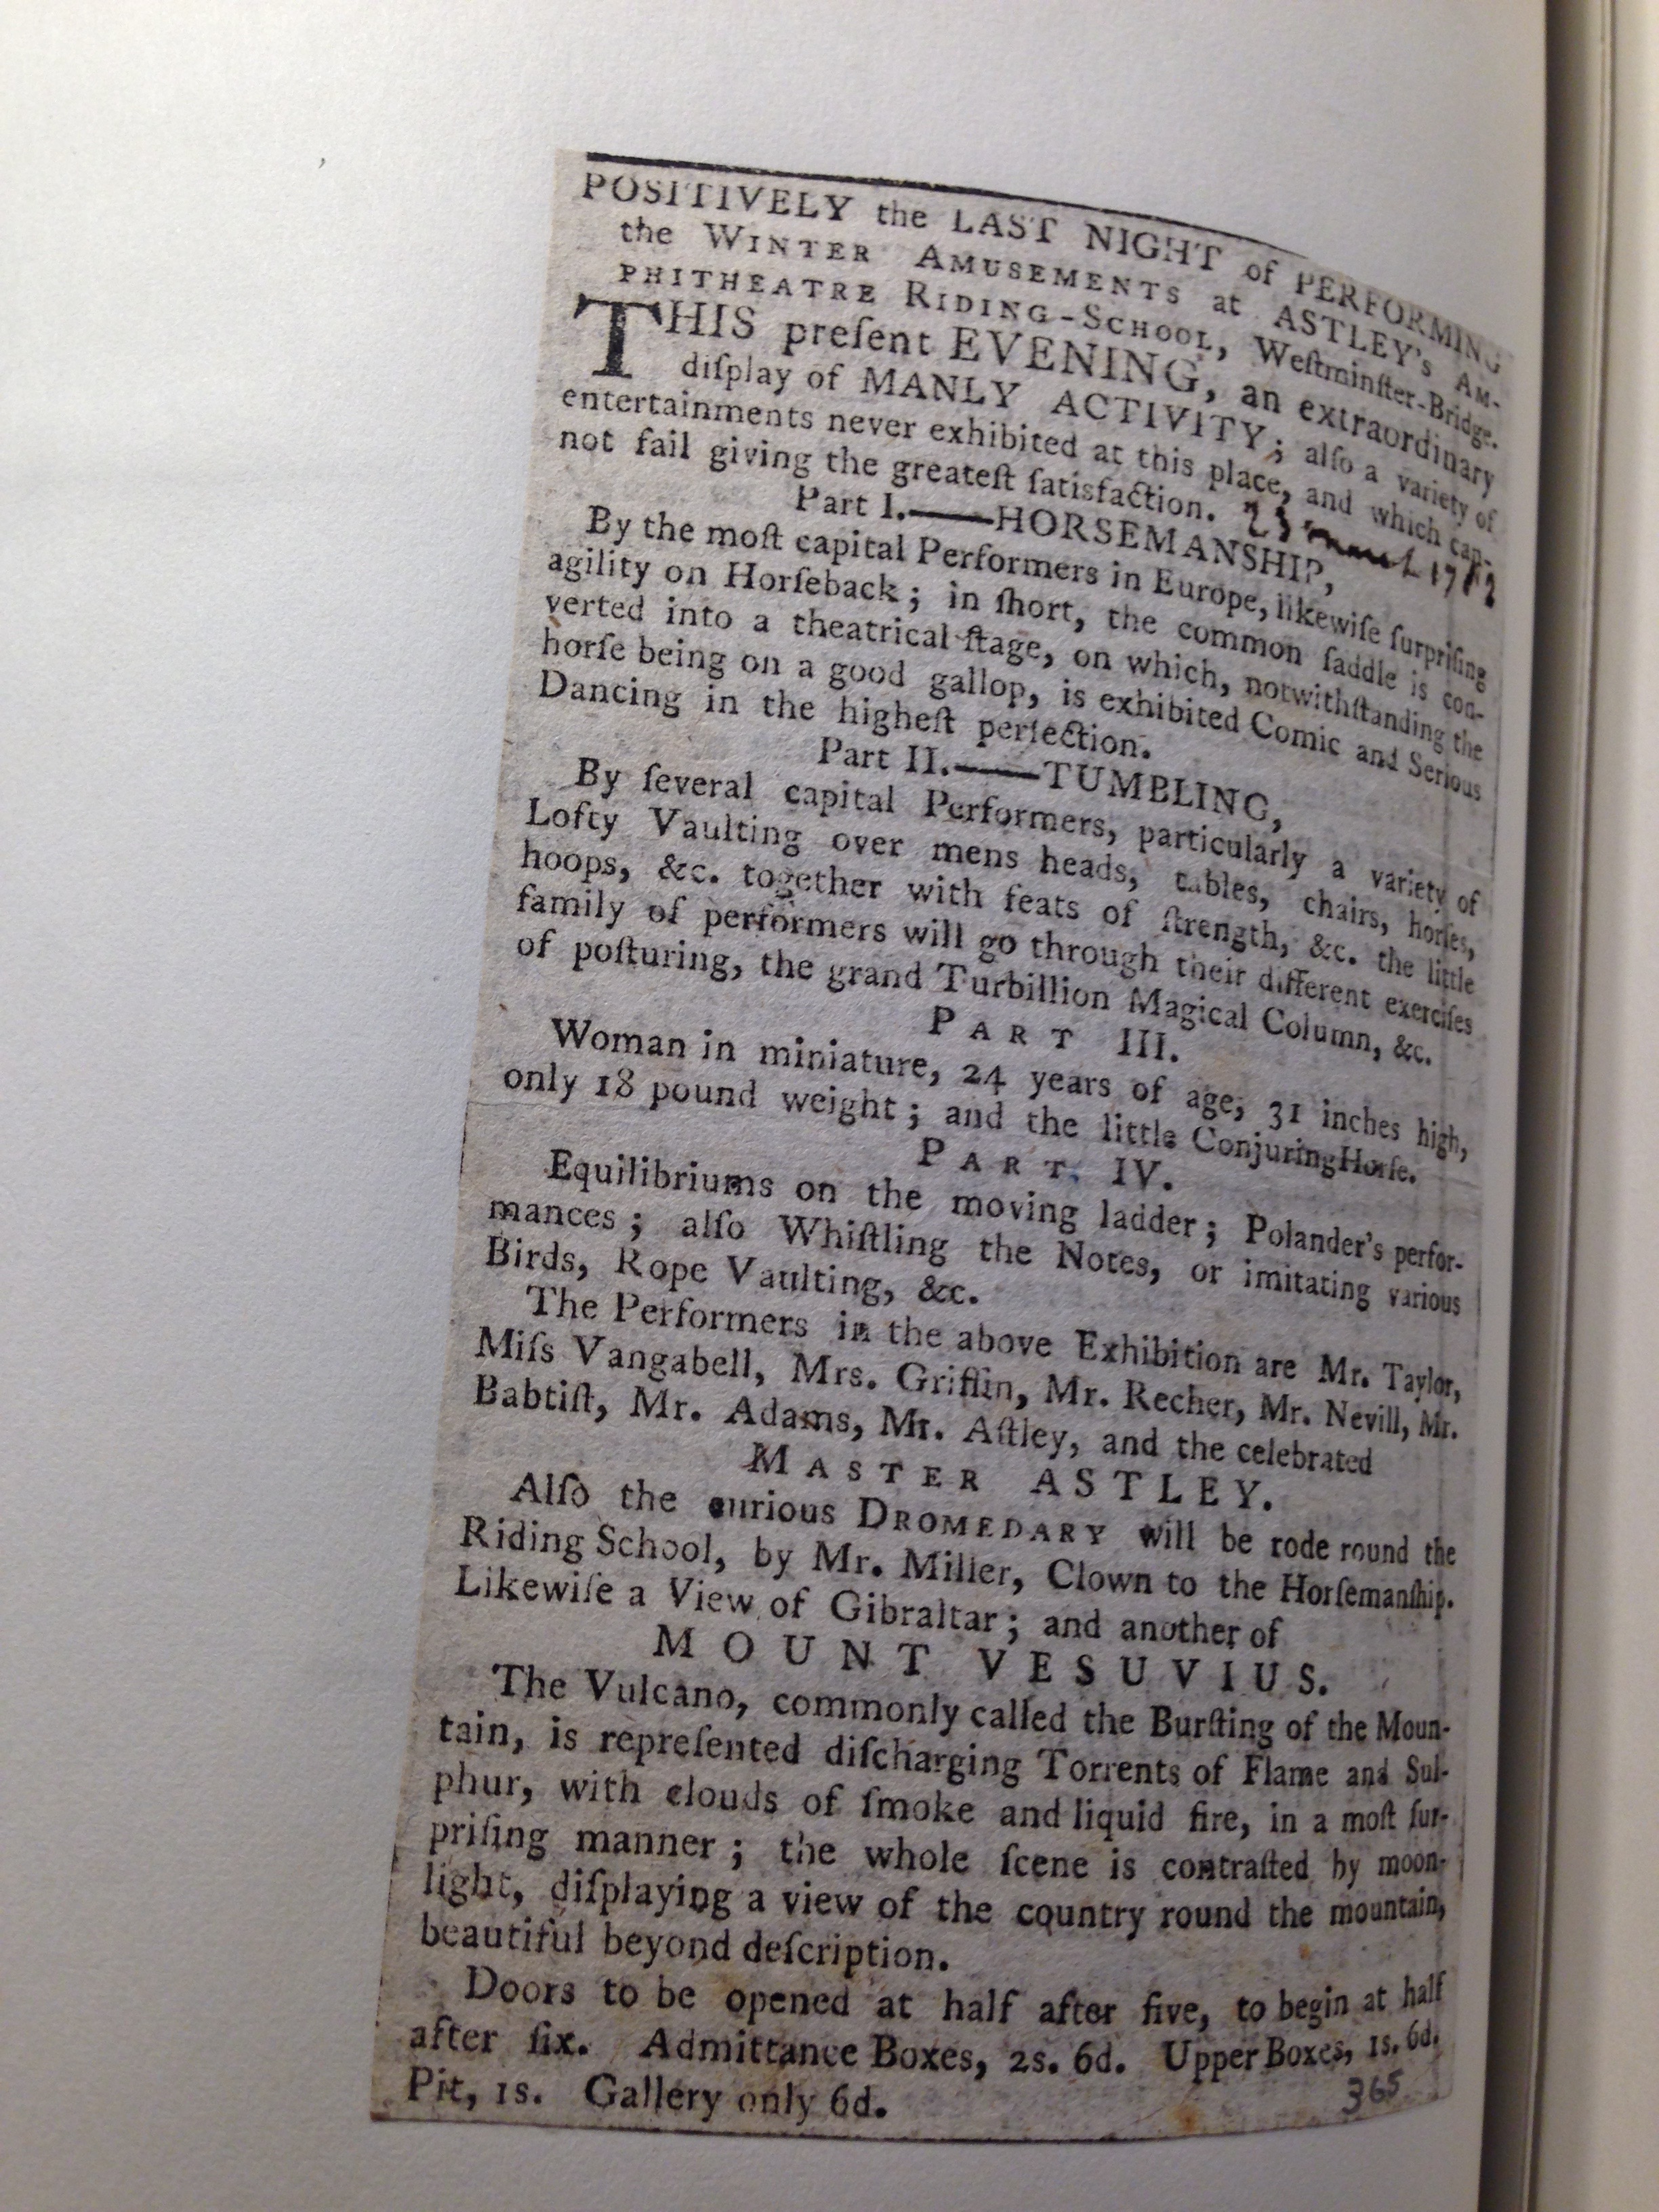 POSITIVELY the LAST NIGHT of PERFORMING
the WINTER AMUSEMENTS at ASTLEY's AM-
PHITHEATRE RIDING-SCHOOL, Weſtminſter-Bridge.
THIS preſent EVENING, an extraordinary
diſplay of MANLY ACTIVITY; alſo a variety of
entertainments never exhibited at this place, and which can-
not fail giving the greateſt ſatisfaction.
Part I.——HORSEMANSHIP,
By the moſt capital Performers in Europe, likewiſe ſurpriſing
agility on Horſeback; in ſhort, the common ſaddle is con-
verted into a theatrical ſtage, on which, notwithſtanding the
horſe being on a good gallop, is exhibited Comic and Serious
Dancing in the higheſt perfection.
Part II.——TUMBLING,
By ſeveral capital Performers, particularly a variety of
Lofty Vaulting over mens heads, tables, chairs, horſes,
hoops, &c. together with feats of ſtrength, &c. the little
family of performers will go through their different exerciſes
of poſturing, the grand Turbillion Magical Column, &c.
PART III.
Woman in miniature, 24 years of age, 31 inches high,
only 18 pound weight; and the little Conjuring Horſe.
PART IV.
Equilibriums on the moving ladder; Polander's perfor-
mances; alſo Whiſtling the Notes, or imitating various
Birds, Rope Vaulting, &c.
The Performers in the above Exhibition are Mr. Taylor,
Miſs Vangabell, Mrs. Griffin, Mr. Recher, Mr. Nevill, Mr.
Babtiſt, Mr. Adams, Mr. Aſtley, and the celebrated
MASTER ASTLEY.
Alſo the curious DROMEDARY will be rode round the
Riding School, by Mr. Miller, Clown to the Horſemanſhip.
Likewiſe a View of Gibraltar; and another of
MOUNT VESUVIUS.
The Vulcano, commonly called the Burſting of the Moun-
tain, is repreſented diſcharging Torrents of Flame and Sul-
phur, with clouds of ſmoke and liquid fire, in a moſt ſur-
priſing manner; the whole ſcene is contraſted by moon-
light, diſplaying a view of the country round the mountain,
beautiful beyond deſcription.
Doors to be opened at half after five, to begin at half
after ſix. Admittance Boxes, 2s. 6d. Upper Boxes, 1s. 6d.
Pit, 1s. Gallery only 6d.
365